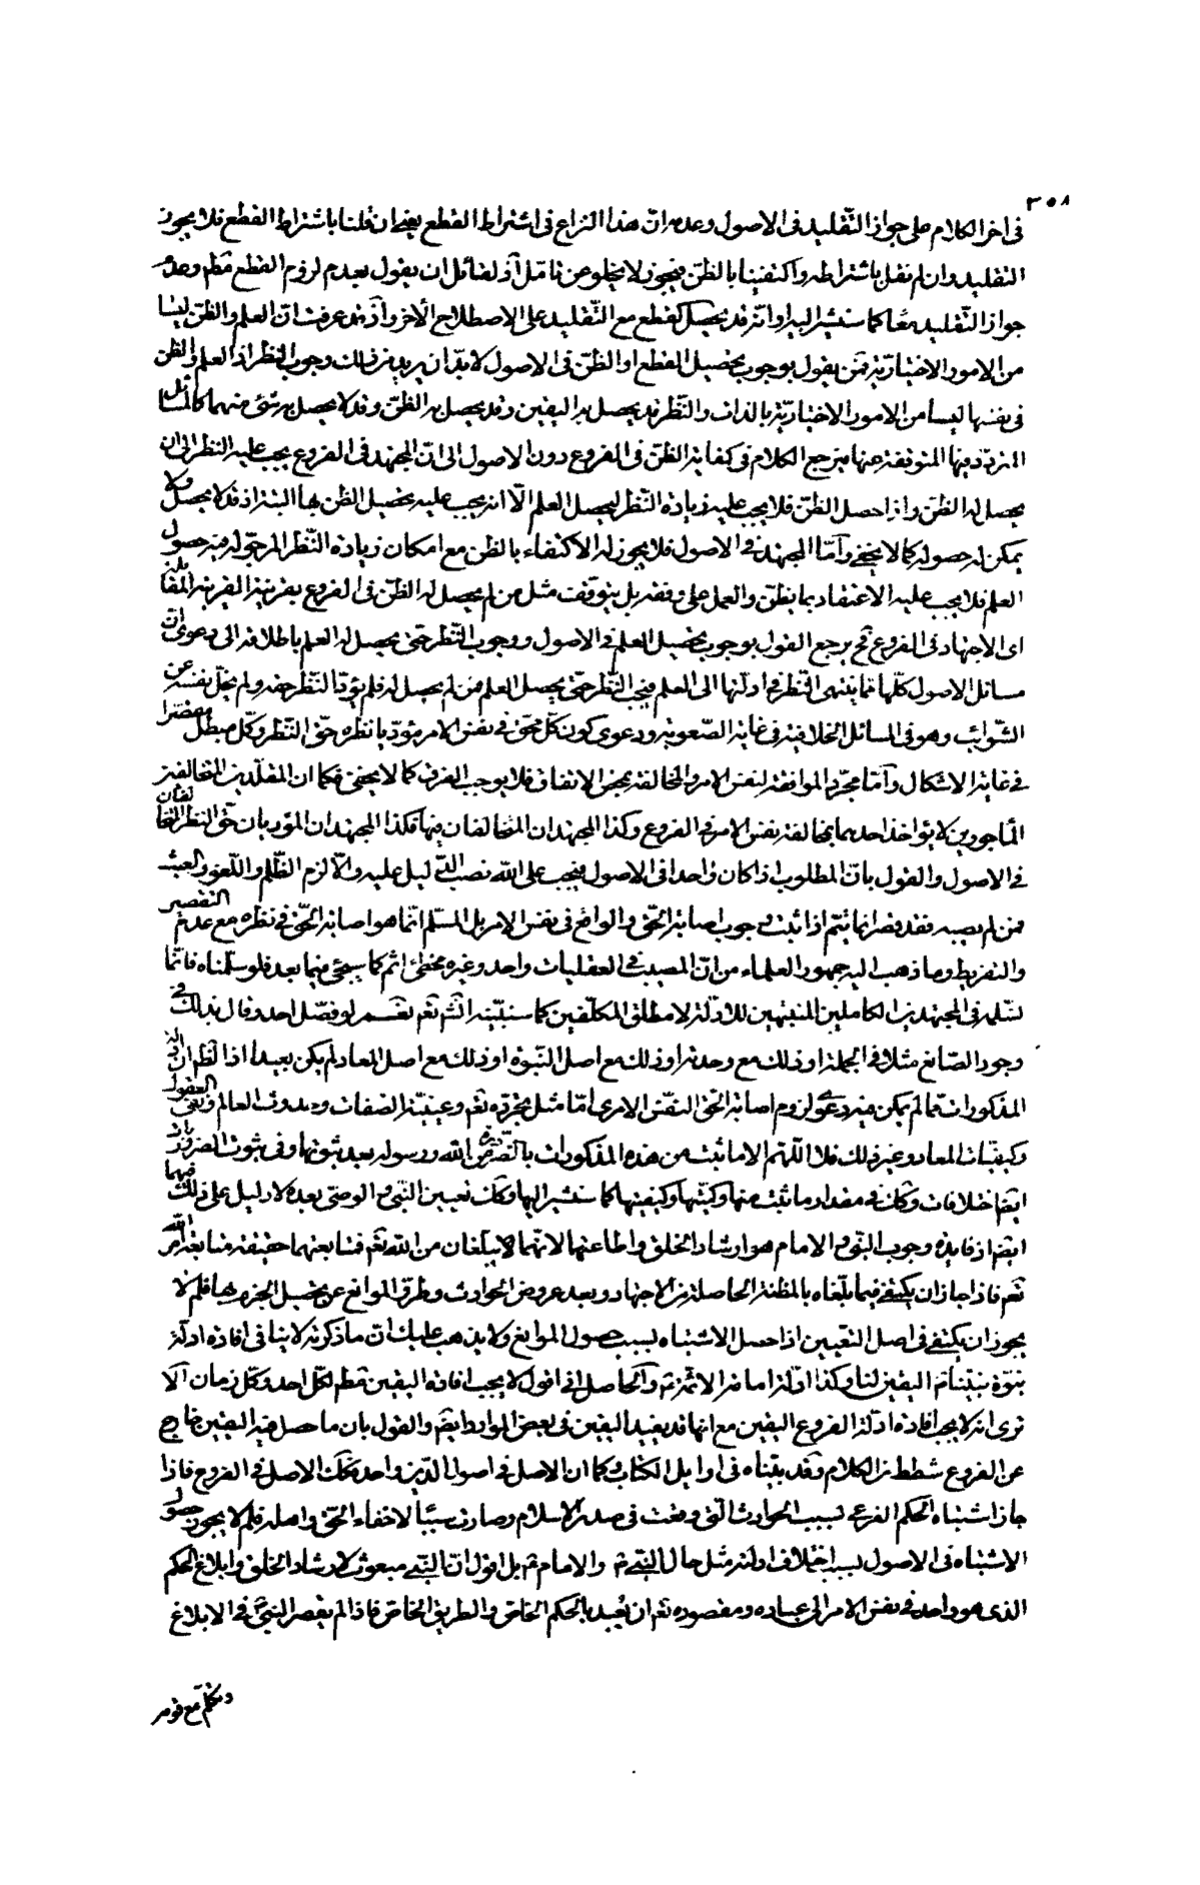 ٣٥٨
فى اخر الكلام على جواز التّقليد فى الاصول وعدمه انّ هذا النزاع فى اشتراط القطع يعنى ان قلنا باشتراط القطع فلا يجوز
التقليد وان لم نقل باشتراطه واكتفينا بالظنّ فيجوز لا يخلو عن تامّل اذ لقائل ان يقول بعدم لزوم القطع مطم وعدم
جواز التّقليد معًا كما سنشير اليه او انّه قد يحصل القطع مع التّقليد على الاصطلاح الأخر واذ قد عرفت انّ العلم والظنّ ليسا
من الامور الاختياريّة فمن يقول بوجوب تحصيل القطع او الظنّ فى الاصول لا بدّ ان يريد من ذلك وجوب النظر اذ العلم والظن
فى نفسها ليسا من الامور الاختياريّة بالذات والنّظر قد يحصل به اليقين وقد يحصل به الظنّ وقد لا يحصل به شئ منهما كالمسائل
المتردد فيها المتوقفة عنها فيرجع الكلام فى كفاية الظنّ فى الفروع دون الاصول الى انّ المجتهد فى الفروع يجب عليه النظر الى ان
يحصل له الظنّ واذا حصل الظنّ فلا يجب عليه زيادة النّظر ليحصل العلم الّا انه يجب عليه تحصيل الظن بها البتة اذ قد لا يحصل ولا
يمكن له حصوله كما لا يخفى وامّا المجتهد فى الاصول فلا يجوز له الاكتفاء بالظن مع امكان زيادة النّظر المرجوّ له فيه حصول
العلم فلا يجب عليه الاعتقاد بما يظنّ والعمل على وفقه بل يتوقّف مثل من لم يحصل له الظنّ فى الفروع بقرينة القرينة المقابلة
اى الاجتهاد فى الفروع فح يرجع القول بوجوب تحصيل العلم فى الاصول ووجوب النّظر حتى يحصل له العلم باطلاقه الى دعوى انّ
مسائل الاصول كلّها مما ينتهى النّظر فى ادلّتها الى العلم فيجب النّظر حتّى يحصل العلم فمن لم يحصل له فلم يؤدّ النّظر حقه ولم يخلّ نفسه عن
الشّوائب وهو فى المسائل الخلافية فى غاية الصّعوبة ودعوى كون كلّ محقّ فى نفس الامر مؤدّيا نظره حقّ النّظر وكلّ مبطل مقصّرا
فى غاية الاشكال وامّا مجرّد الموافقة لنفس الامر والمخالفة بمحض الاتفاق فلا يوجب الفرق كما لا يخفى فكما ان المقلّدين المتخالفين
المأجورين لا يؤاخذ احدهما بمخالفة نفس الامر فى الفروع وكذا المجتهدان المتخالفان فيها فكذا المجتهدان المؤديان حقّ النظر المتخالفان
فى الاصول والقول بانّ المطلوب اذا كان واحدا فى الاصول فيجب على الله نصب الدّليل عليه والّا لزم الظّلم واللّغو والعبث
فمن لم يصبه فقد قصّر انما يتمّ اذا ثبت وجوب اصابة الحقّ والواقع فى نفس الامر بل المسّلم انّما هو اصابة الحقّ فى نظره مع عدم التقصير
والتفريط وما ذهب اليه جمهور العلماء من انّ المصيب فى العقليات واحد وغيره مخطئ اثم كما سيجئ فيما بعد فلو سلّمناه فانّما
نسّلمه فى المجتهدين الكاملين المنبّهين للادلّة لا مطلق المكلّفين كما سنبيّنه انشٓ تعم نعم لو فصّل احد وقال بذلك فى
وجود الصّانع مثلا فى الجملة او ذلك مع وحدته او ذلك مع اصل النّبوّة او ذلك مع اصل المعاد لم يكن بعيدا اذ الظّم ان ادلّة
المذكورات ممّا لم يمكن فيه دعوى لزوم اصابة الحقّ النفس الامرى امّا مثل تجرّده تعم وعينيّة الصّفات وحدوث العالم ونفى العقول
وكيفيّات المعاد وغير ذلك فلا اللّهم الا ما ثبت من هذه المذكورات بالضّرورة من الله ورسوله بعد ثبوتها وفى ثبوت الضرورة بات
ايضا خلافات وكان فى مقدار ما ثبت منها وكمّيتها وكيفيتها كما سنشير اليها وكك تعيين النّبى والوصىّ بعده لا دليل على ذلك فيهما
ايضا اذ فايده وجوب النّبى والامام هو ارشاد الخلق واطاعتهما لانّهما لا يبلّغان من الله تعم فمتابعتهما حقيقة متابعة امر الله
تعم فاذا جاز ان يكتفى فيما بلّغاه بالمظنة الحاصلة من الاجتهاد وبعد عروض الحوادث وطرق الموانع عن تحصيل الجزم بها فلم لا
يجوز ان يكتفى فى اصل التعيين اذا حصل الاشتباه بسبب حصول الموانع ولا يذهب عليك انّ ما ذكرته لا ينافى افاده ادلة
نبوّة نبيّنا ص اليقين لنا وكذا ادلّة امامة الائمّة ع والحاصل انّى اقول لا يجب افادة اليقين مطم لكلّ احد وكلّ زمان الا
ترى انّه لا يجب افادة ادلّة الفروع اليقين مع انها قد يفيد اليقين فى بعض الموارد ايضم والقول بان ما حصل فيه اليقين خارج
عن الفروع شطط من الكلام وقد بيّناه فى اوايل الكتاب وكما ان الاصل فى اصول الدّين واحد فكك الاصل فى الفروع فاذا
جاز اشتباه الحكم الفرعى بسبب الحوادث الّتى وقعت فى صدر الاسلام وصارت سببًا لاخفاء الحقّ واهله فلم لا يجوز حصول
الاشتباه فى الاصول بسبب اختلاف ادلّته مثل حال النّبى ص والامام ع بل اقول انّ النّبى مبعوث لارشاد الخلق وابلاغ الحكم
الذى هو واحد فى نفس الامر الى عباده ومقصوده تعم ان يُعبد بالحكم الخاصّ والطريق الخاصّ فاذا لم يقصر النبىّ فى الابلاغ
وتكلّم مع قومه